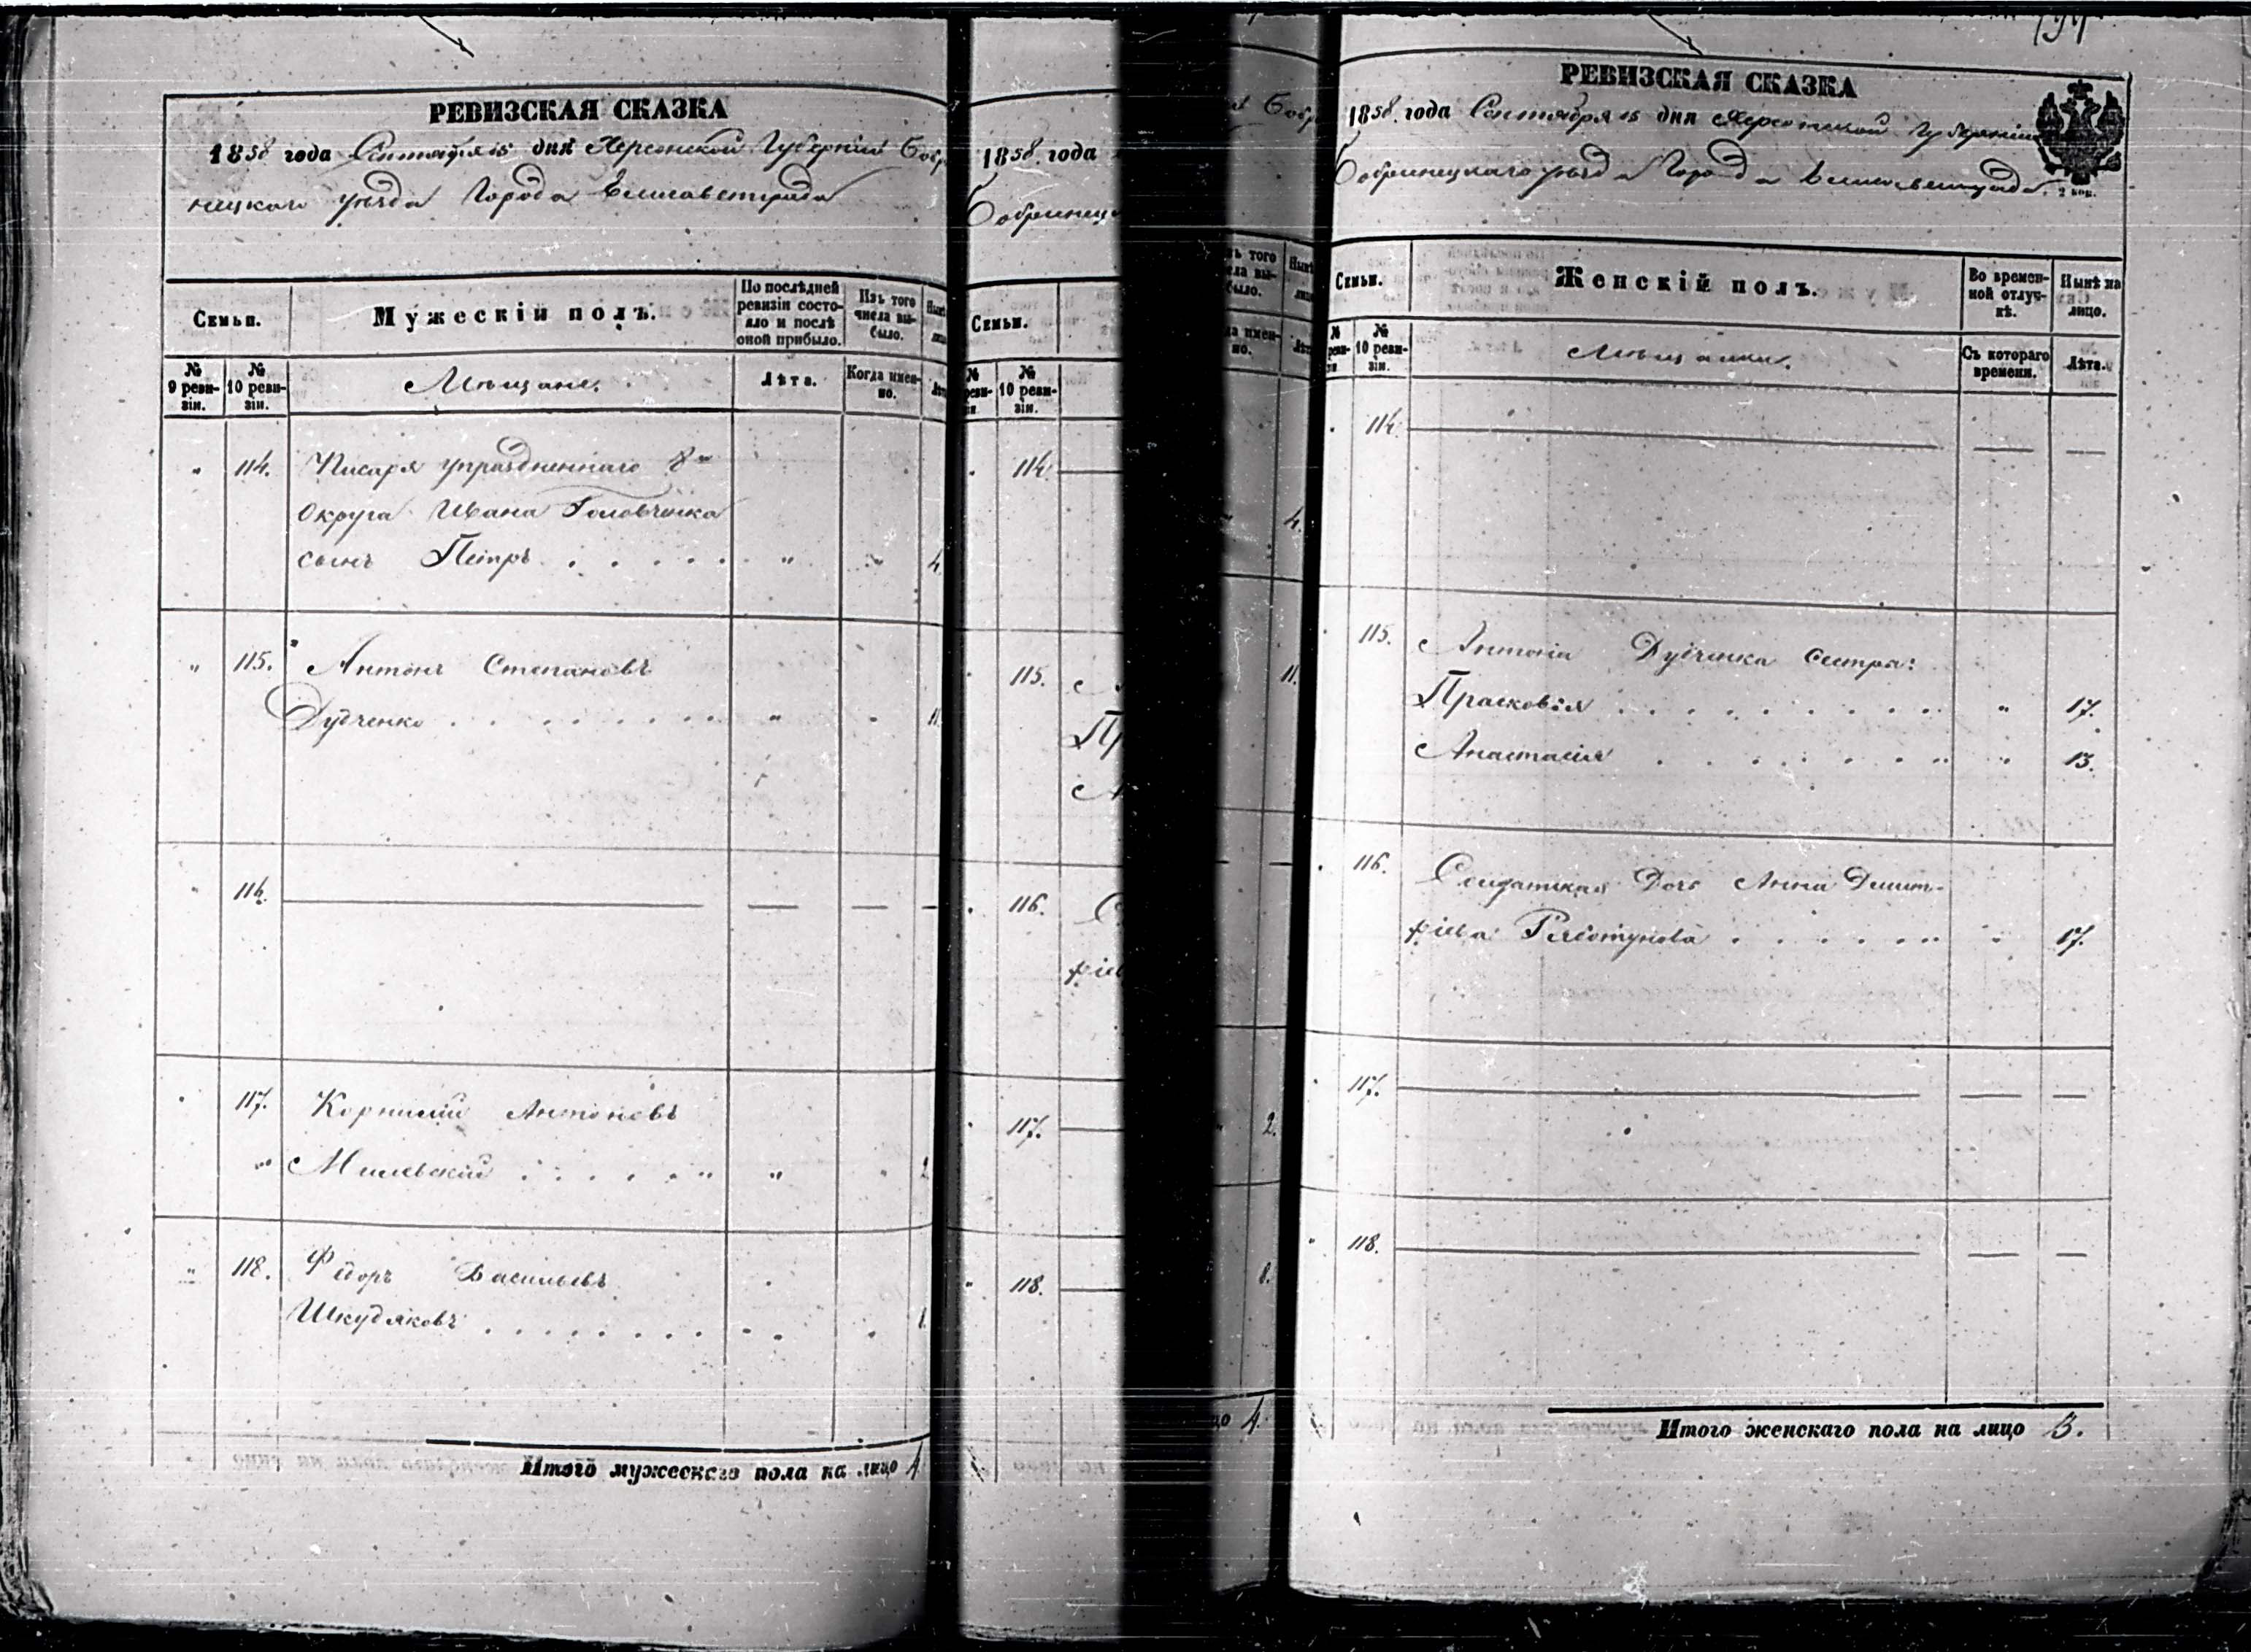 РЕВИЗСКАЯ СКАЗКА
1858 года Сентября 15 дня Херсонской Губерніи Бобри
нецкаго уѣзда Города Елисаветграда
Семьи.
Мужескій полъ.
По послѣдней ревизіи состояло и послѣ оной прибыло.
Изъ того числа выбыло.
№ 9 ревизіи.
№ 10 ревизіи.
Мѣщане.
Лѣта.
Когда именно.
" 114. Писаря упраздненнаго 8го
Округа Ивана Головченка
сынъ Петръ . . . . . . " " 4.
" 115. Антонъ Степановъ
Дудченко . . . . . . . " " 11.
" 114. — — —
" 117. Корнилій Антоновъ
Милевскій . . . . . " " " 2.
" 118. Федоръ Васильевъ
Шкудяковъ . . . . . . . . " " 1.
Итого мужескаго пола на лицо 4
1858 года
Бобринец
Семьи.
№ 10 ревизіи.
114
115.
Пр
116.
ріев
117.
118.
4.
11.
2.
1.
4.
РЕВИЗСКАЯ СКАЗКА
1858 года Сентября 15 дня Херсонской Губерніи
Бобринецкаго уѣзда Города Елисаветграда
2 коп.
Семьи.
Женскій полъ.
Во временной отлучкѣ.
Нынѣ на лицо.
№ 10 ревизіи.
Мѣщанки.
Съ котораго времени.
Лѣта.
114. — — —
115. Антонія Дудченка сестра:
Прасковія . . . . . . . . . . " 17.
Анастасія . . . . . . . . " " 13.
116. Солдатская Дочь Анна Димит-
ріева . . . . . . " " 17.
117. — — —
118. — — —
Итого женскаго пола на лицо 3.